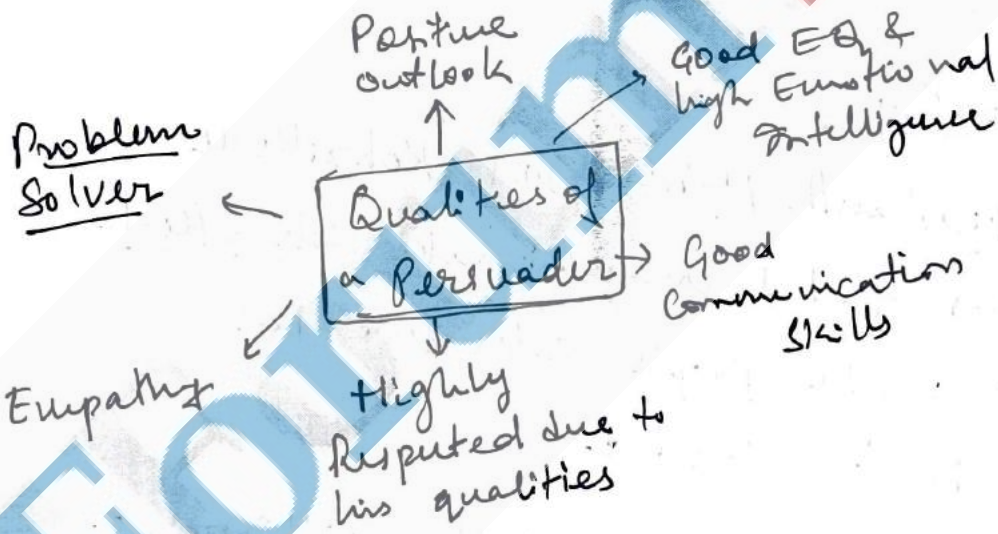 Positive
outlook
Good EQ &
high Emotional
Intelligence
Problem
Solver
Qualities of
a Persuader
Good
Communication
Skills
Empathy
Highly
Respected due to
his qualities
Forum